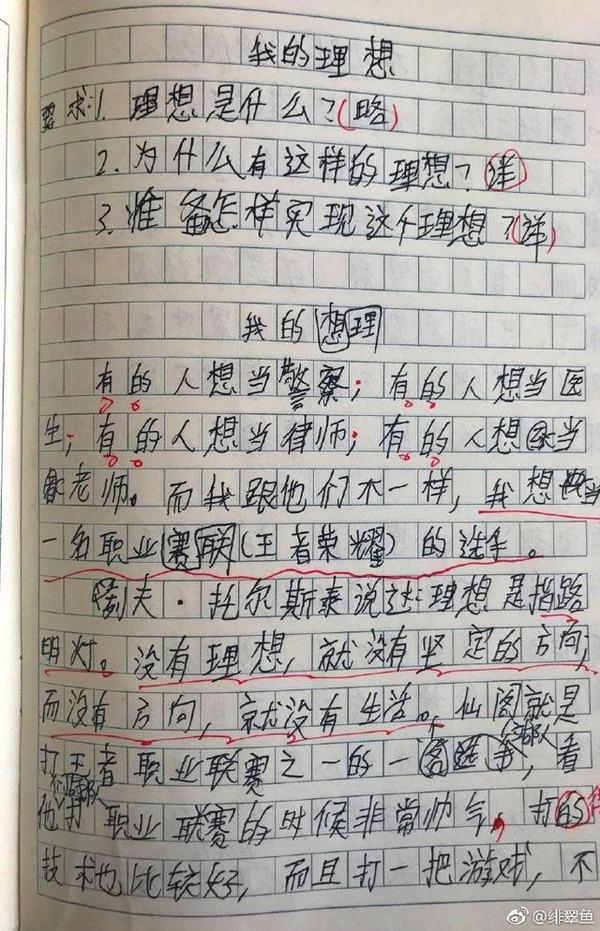 我的理想
要求:1.理想是什么?(略)
2.为什么有这样的理想?(详)
3.准备怎样实现这个理想?(详)
我的想理
有的人想当警察;有的人想当医
生;有的人想当律师;有的人想当
老师。而我跟他们不一样,我想当
一名职业赛联(王者荣耀)的选手。
夫·托尔斯泰说过:理想是指路
明灯。没有理想,就没有坚定的方向;
而没有方向,就没有生活。仙阁就是
打王者职业联赛之一的一名选手,看
他打职业联赛的时候非常帅气,打的
技术也比较好,而且打一把游戏,不
@绯翠鱼